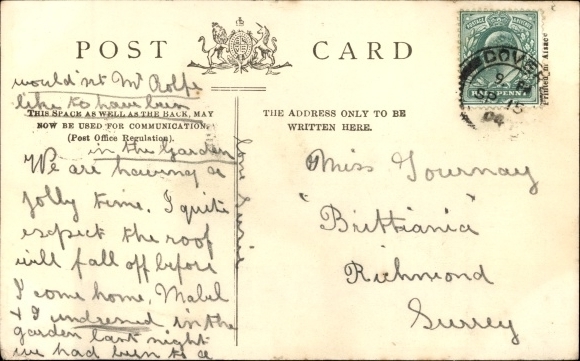 POST CARD
wouldn't Mr Rolfe
like to have been
THIS SPACE AS WELL AS THE BACK, MAY
NOW BE USED FOR COMMUNICATION.
(Post Office Regulation).
in the garden
We are having a
jolly time. I quite
expect the roof
will fall off before
I come home, Mabel
& I undressed in the
garden last night
we had been to a
love
THE ADDRESS ONLY TO BE
WRITTEN HERE.
Miss Gournay
"Brittiania"
Richmond
Surrey
POSTAGE REVENUE
HALFPENNY
DOVER
15
04
Printed in Alsace